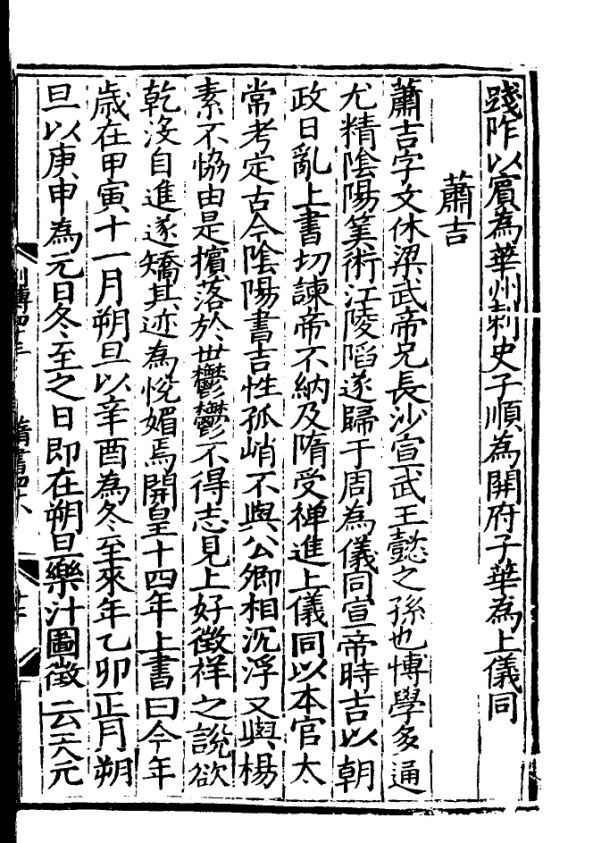 踐阼以賔為華州刺史子順為開府子華為上儀同
蕭吉
蕭吉字文休梁武帝兄長沙宣武王懿之孫也博學多通
尤精陰陽筭術江陵䧟遂歸于周為儀同宣帝時吉以朝
政日亂上書切諫帝不納及隋受禅進上儀同以本官太
常考定古今陰陽書吉性孤峭不與公卿相沉浮又與楊
素不恊由是擯落於世鬱鬱不得志見上好徵祥之說欲
乾没自進遂矯其迹為悅媚焉開皇十四年上書曰今年
歳在甲寅十一月朔旦以辛酉為冬至來年乙卯正月朔
旦以庚申為元日冬至之日即在朔旦樂汁圖徵云天元
列傳四十三 隋書四十八